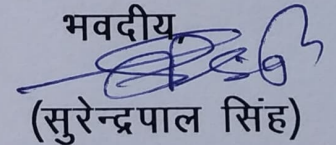 भवदीय,
(सुरेन्द्रपाल सिंह)